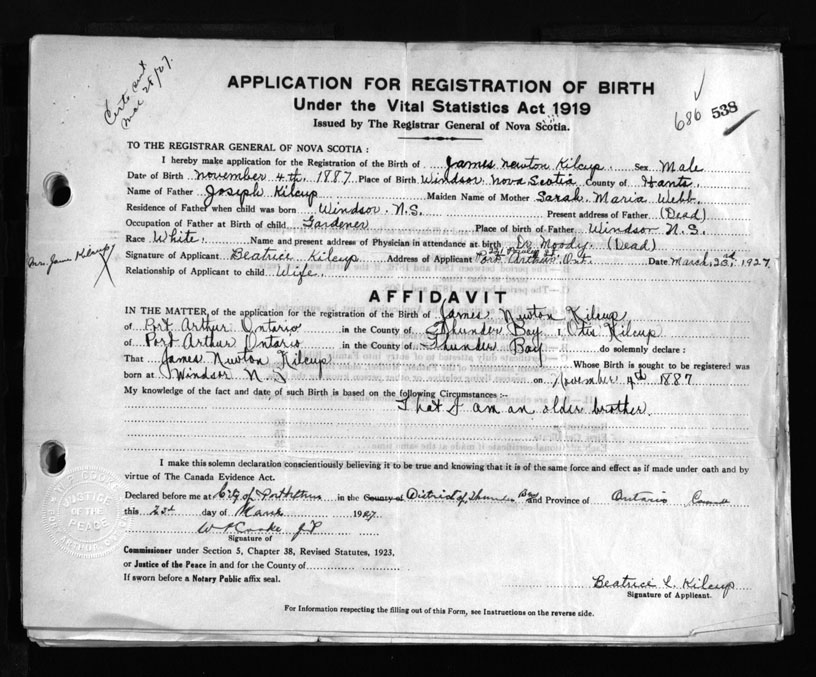 Certs sent
Mar 28/27.
686 538
APPLICATION FOR REGISTRATION OF BIRTH
Under the Vital Statistics Act 1919
Issued by The Registrar General of Nova Scotia.
TO THE REGISTRAR GENERAL OF NOVA SCOTIA :
I hereby make application for the Registration of the Birth of James Newton Kilcup. Sex Male
Date of Birth November 4th, 1887 Place of Birth Windsor Nova Scotia County of Hants.
Name of Father Joseph Kilcup Maiden Name of Mother Sarah Maria Webb.
Residence of Father when child was born Windsor. N.S. Present address of Father (Dead)
Occupation of Father at Birth of child Gardener Place of birth of Father Windsor N.S.
Race White. Name and present address of Physician in attendance at birth Dr Moody. (Dead)
Mrs. James Kilcup
Signature of Applicant Beatrice Kilcup Address of Applicant Port Arthur, Ont. Date March, 23rd, 1927
Relationship of Applicant to child Wife.
AFFIDAVIT
IN THE MATTER, of the application for the registration of the Birth of James Newton Kilcup
of Port Arthur Ontario in the County of Thunder Bay, I, Otis Kilcup
of Port Arthur Ontario in the County of Thunder Bay do solemnly declare :
That James Newton Kilcup Whose Birth is sought to be registered was
born at Windsor N.S on November 4th 1887
My knowledge of the fact and date of such Birth is based on the following Circumstances :-
That I am an older brother.
I make this solemn declaration conscientiously believing it to be true and knowing that it is of the same force and effect as if made under oath and by
virtue of The Canada Evidence Act.
Declared before me at City of Port Arthur in the County of District of Thunder Bay and Province of Ontario
this 22d day of March 1927
W P Cooke J P
Signature of
Commissioner under Section 5, Chapter 38, Revised Statutes, 1923,
or Justice of the Peace in and for the County of
If sworn before a Notary Public affix seal.
JUSTICE
OF THE
PEACE
Beatrice L. Kilcup
Signature of Applicant.
For Information respecting the filling out of this Form, see Instructions on the reverse side.